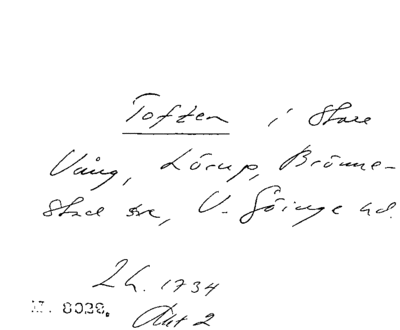 Toften i Stora
Vång, Lörup, Brönne-
stad sn, V. Göinge hd.
Lh. 1734
M. 8028. Akt 2